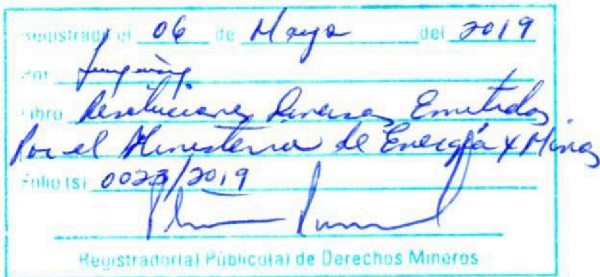 Registrado el 06 de Mayo del 2019
Por
Libro Resoluciones Diversas Emitidas
Por el Ministerio de Energía y Minas
Folio(s) 0023/2019
Registrador(a) Público(a) de Derechos Mineros